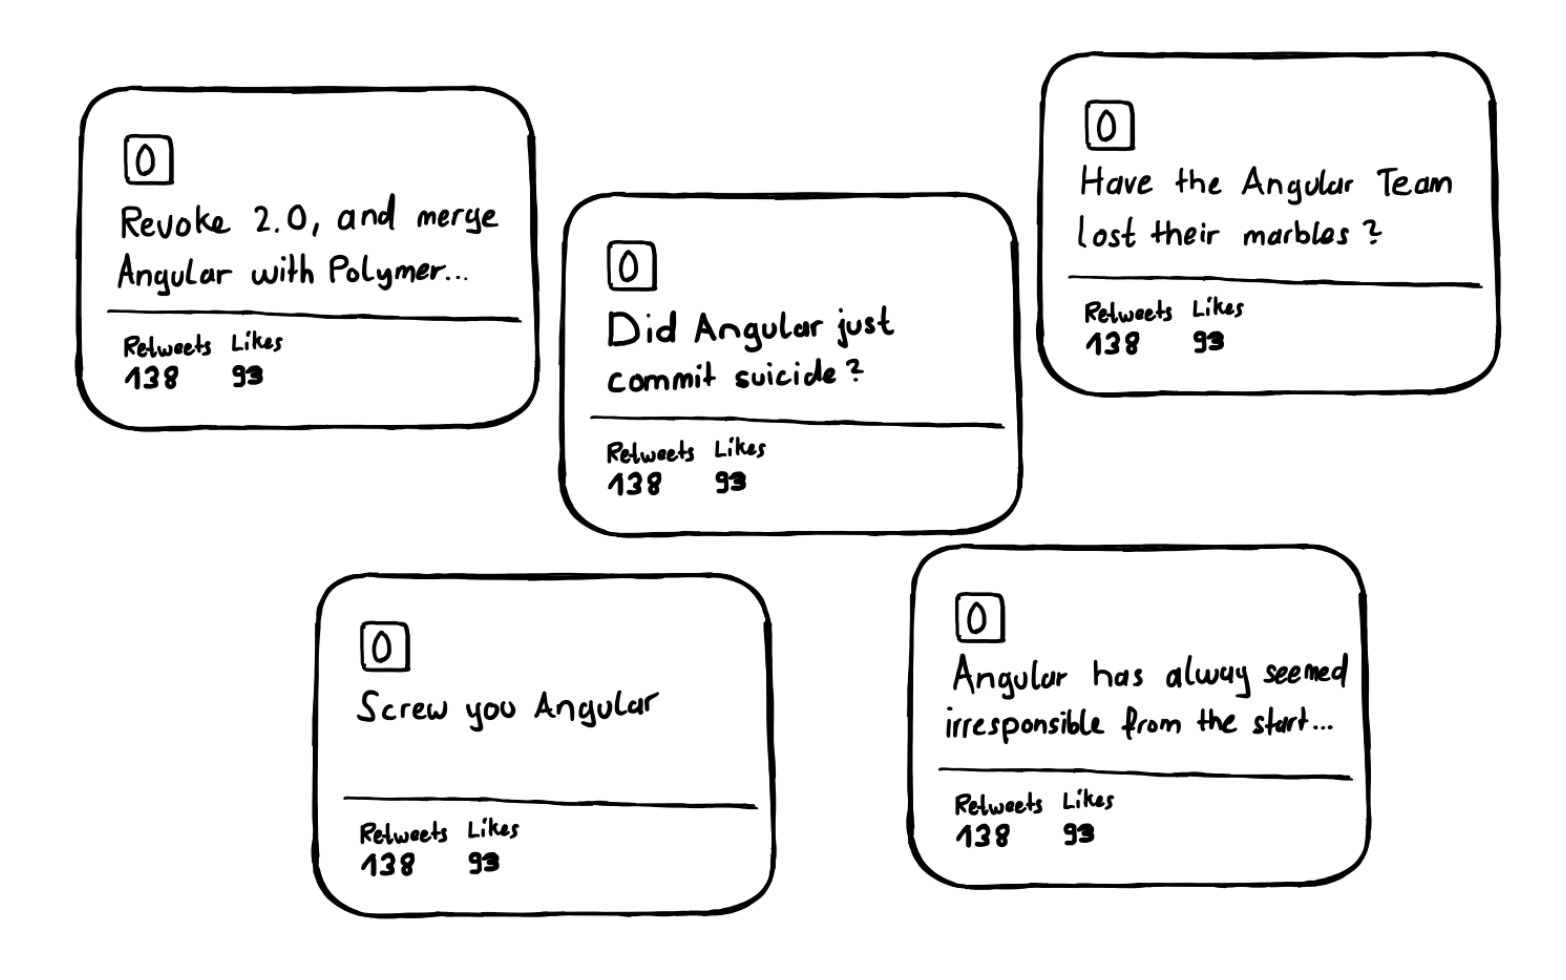 0
Revoke 2.0, and merge
Angular with Polymer...
Retweets Likes
138 93
0
Did Angular just
commit suicide?
Retweets Likes
138 93
0
Have the Angular Team
lost their marbles?
Retweets Likes
138 93
0
Screw you Angular
Retweets Likes
138 93
0
Angular has alway seemed
irresponsible from the start...
Retweets Likes
138 93